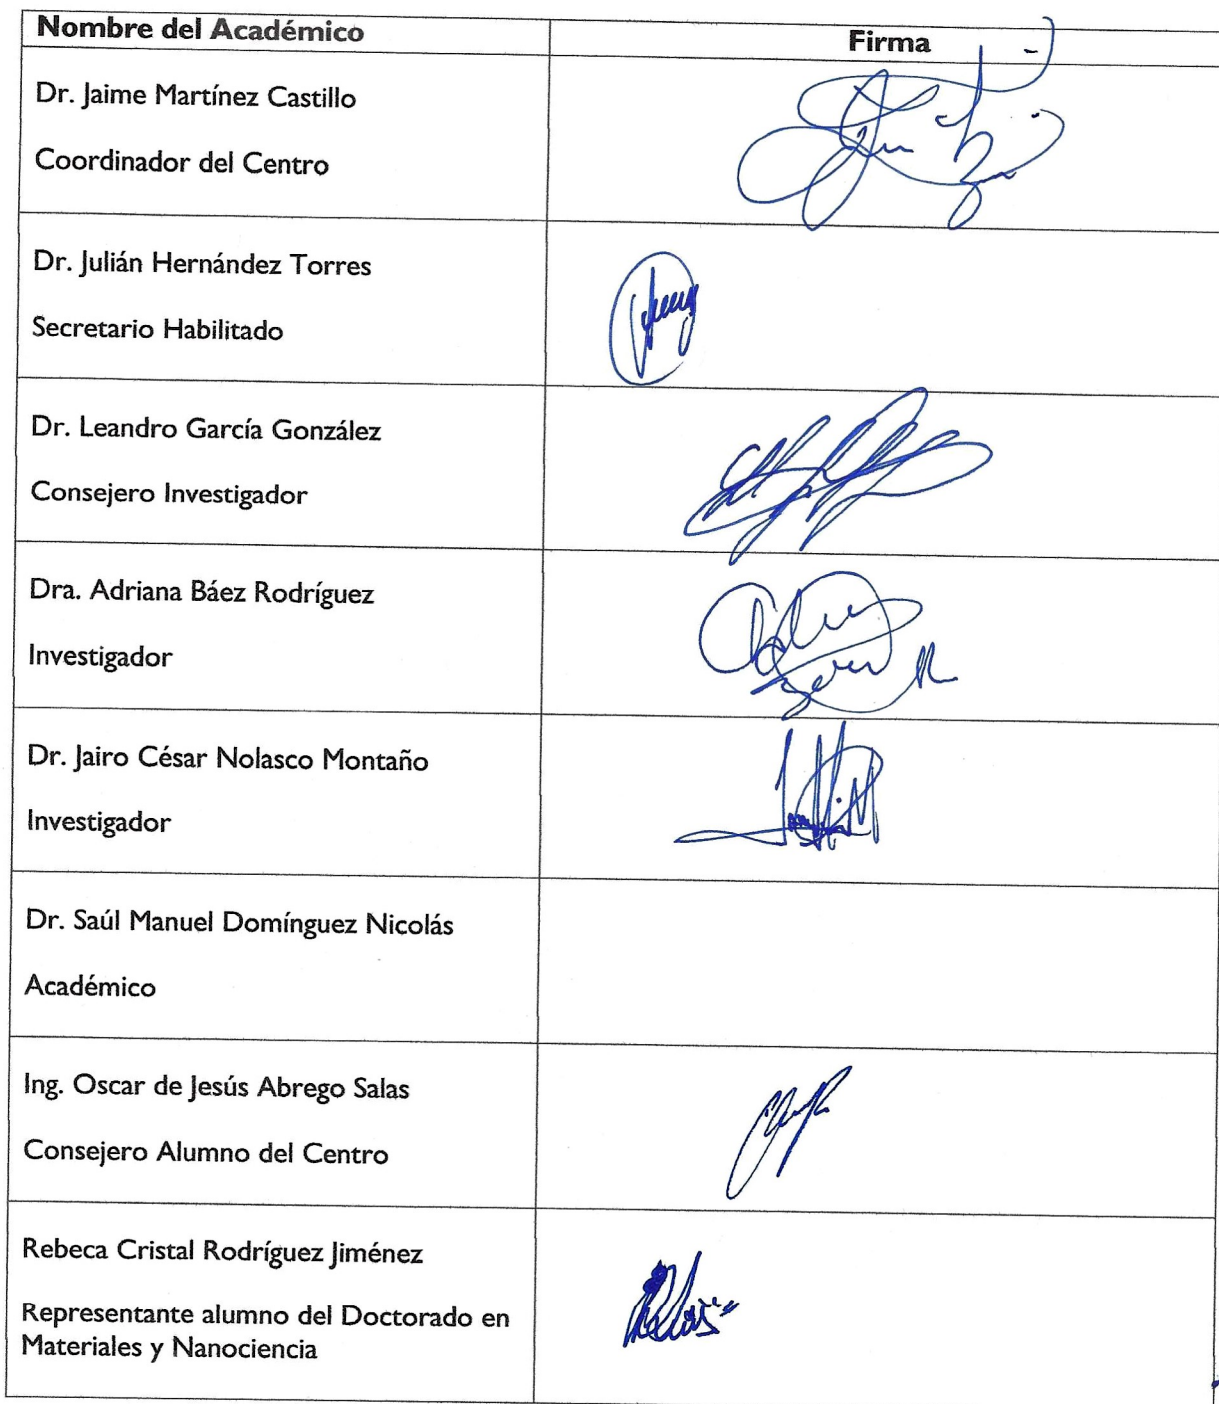 Nombre del Académico
Firma
Dr. Jaime Martínez Castillo
Coordinador del Centro
Dr. Julián Hernández Torres
Secretario Habilitado
Dr. Leandro García González
Consejero Investigador
Dra. Adriana Báez Rodríguez
Investigador
Dr. Jairo César Nolasco Montaño
Investigador
Dr. Saúl Manuel Domínguez Nicolás
Académico
Ing. Oscar de Jesús Abrego Salas
Consejero Alumno del Centro
Rebeca Cristal Rodríguez Jiménez
Representante alumno del Doctorado en
Materiales y Nanociencia